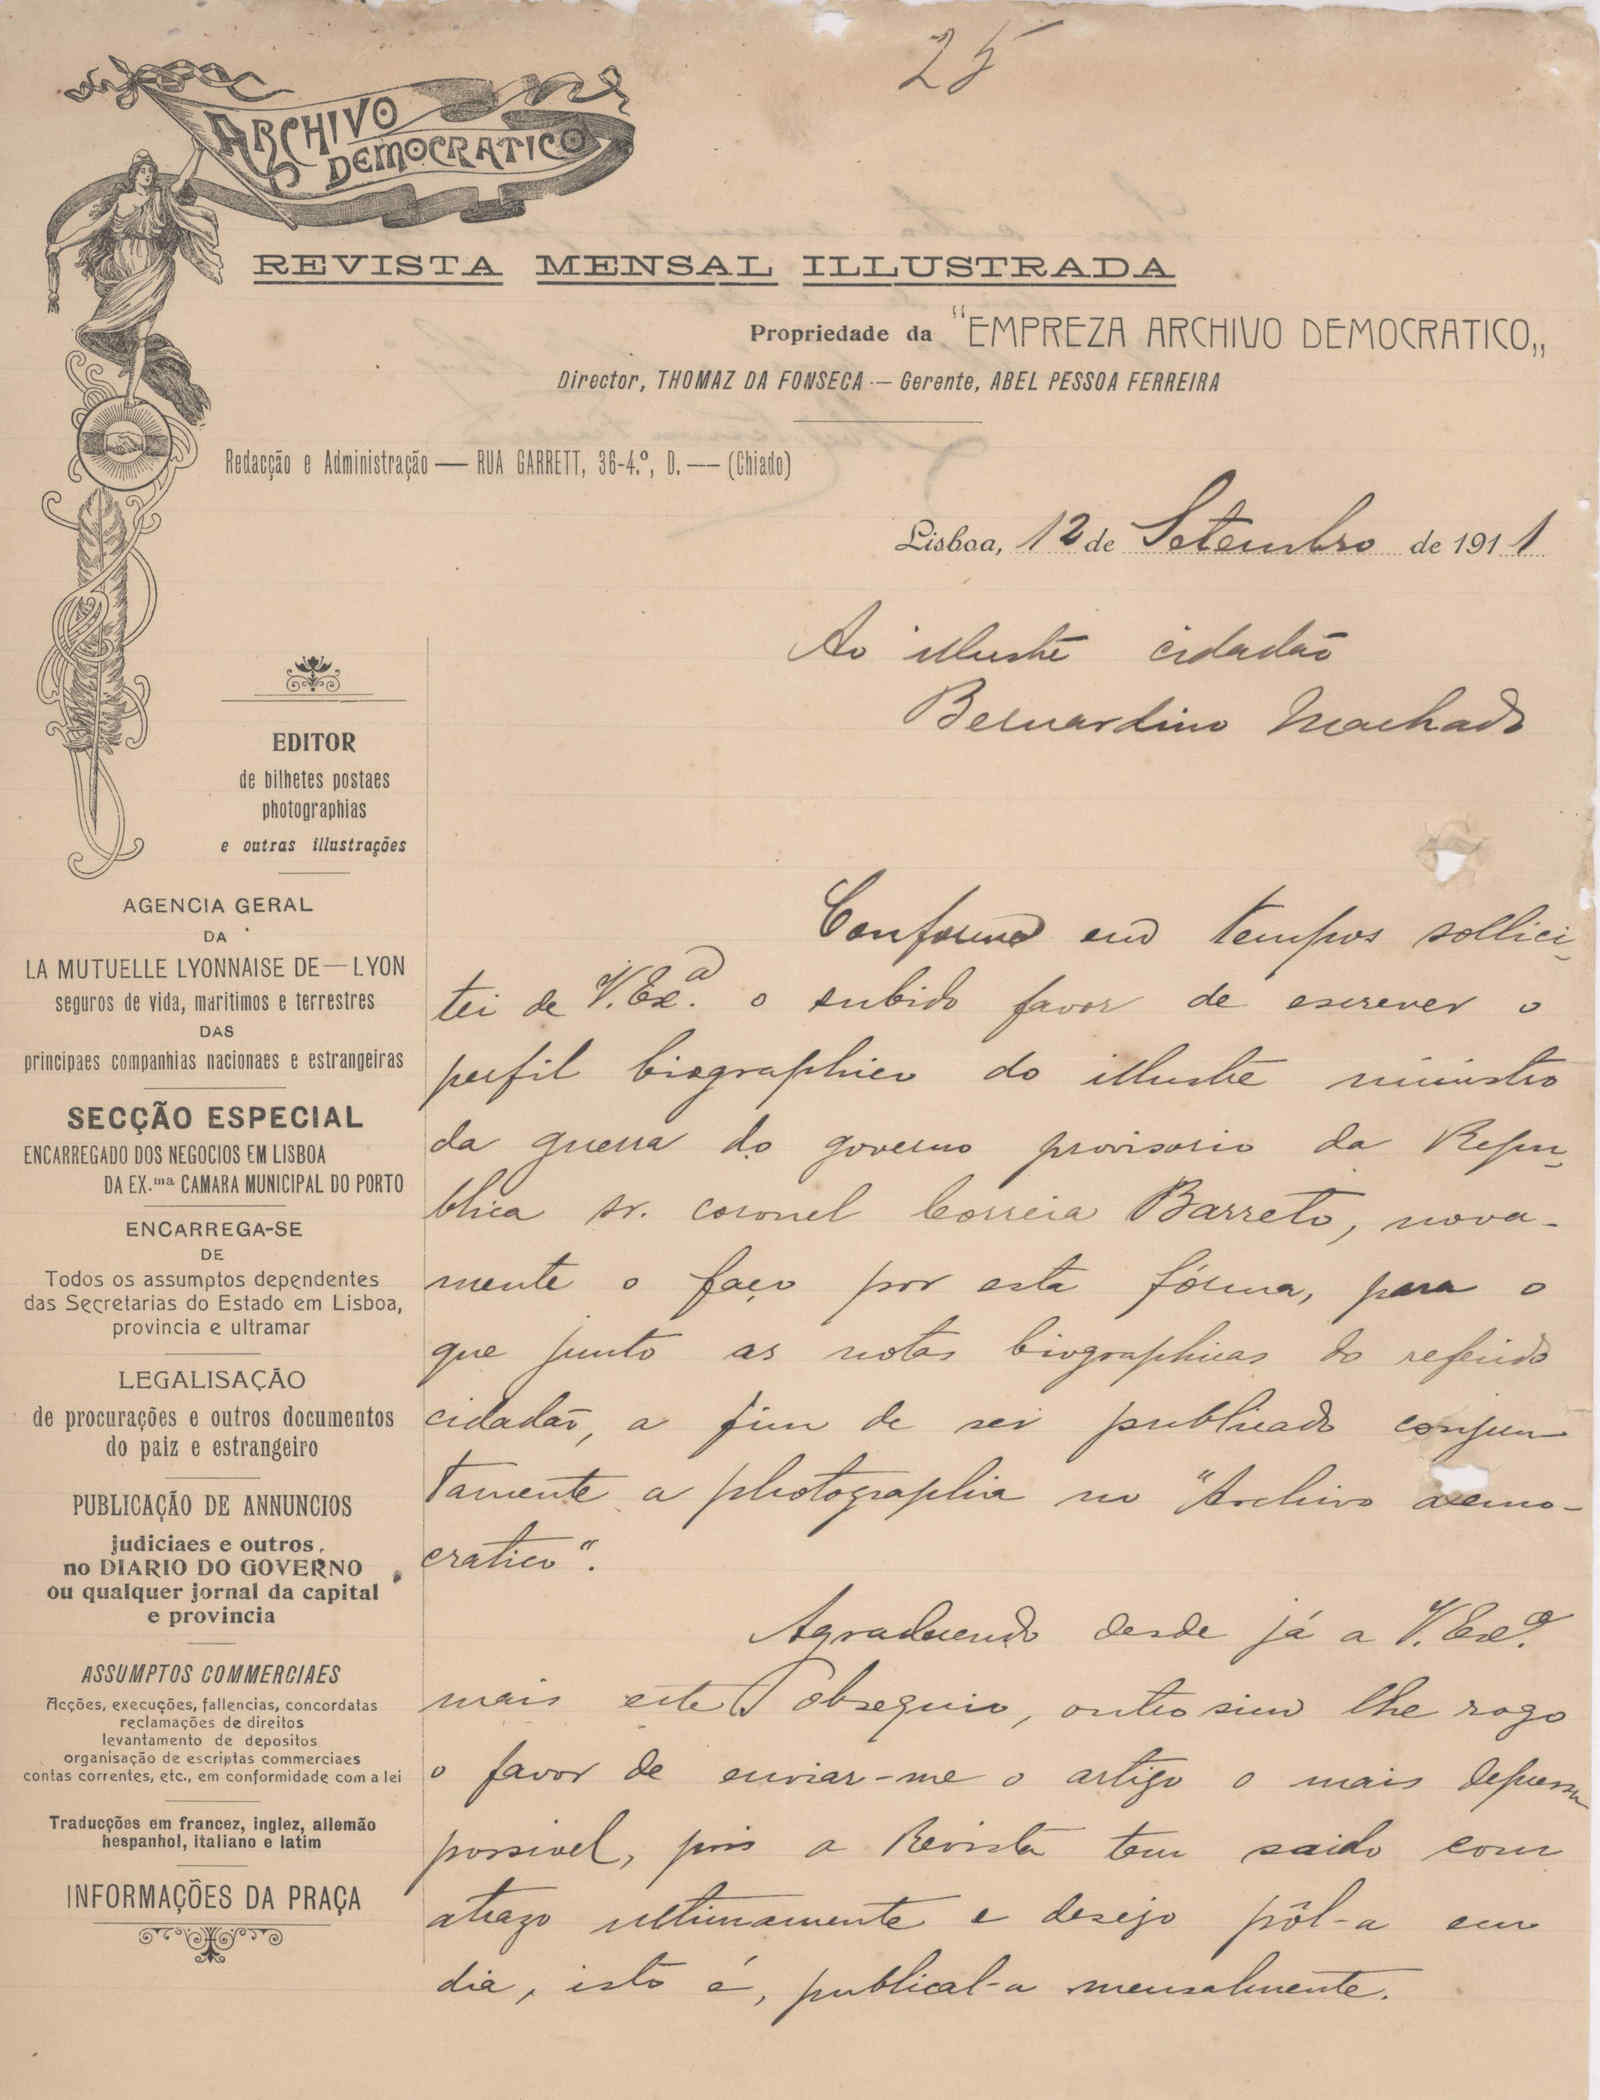 25
ARCHIVO
DEMOCRATICO
REVISTA MENSAL ILLUSTRADA
Propriedade da "EMPREZA ARCHIVO DEMOCRATICO„
Director, THOMAZ DA FONSECA — Gerente, ABEL PESSOA FERREIRA
Redacção e Administração — RUA GARRETT, 36-4.º, D. — (Chiado)
Lisboa, 12 de Setembro de 1911
Ao illustre cidadão
Bernardino Machado
EDITOR
de bilhetes postaes
photographias
e outras illustrações
AGENCIA GERAL
DA
LA MUTUELLE LYONNAISE DE—LYON
seguros de vida, maritimos e terrestres
DAS
principaes companhias nacionaes e estrangeiras
SECÇÃO ESPECIAL
ENCARREGADO DOS NEGOCIOS EM LISBOA
DA EX.ma CAMARA MUNICIPAL DO PORTO
ENCARREGA-SE
DE
Todos os assumptos dependentes
das Secretarias do Estado em Lisboa,
provincia e ultramar
LEGALISAÇÃO
de procurações e outros documentos
do paiz e estrangeiro
PUBLICAÇÃO DE ANNUNCIOS
judiciaes e outros,
no DIARIO DO GOVERNO
ou qualquer jornal da capital
e provincia
ASSUMPTOS COMMERCIAES
Acções, execuções, fallencias, concordatas
reclamações de direitos
levantamento de depositos
organisação de escriptas commerciaes
contas correntes, etc., em conformidade com a lei
Traducções em francez, inglez, allemão
hespanhol, italiano e latim
INFORMAÇÕES DA PRAÇA
Conforme em tempos sollici-
tei de V. Ex.a o subido favor de escrever o
perfil biographico do illustre ministro
da guerra do governo provisorio da Repu-
blica sr. coronel Correia Barreto, nova-
mente o faço por esta fórma, para o
que junto as notas biographicas do referido
cidadão, a fim de ser publicado conjun
tamente a photographia no "Archivo demo-
cratico".
Agradecendo desde já a V. Ex.a
mais este obsequio, outrosim lhe rogo
o favor de enviar-me o artigo o mais depressa
possivel, pois a Revista tem saido com
atrazo ultimamente e desejo pôl-a em
dia, isto é, publical-a mensalmente.